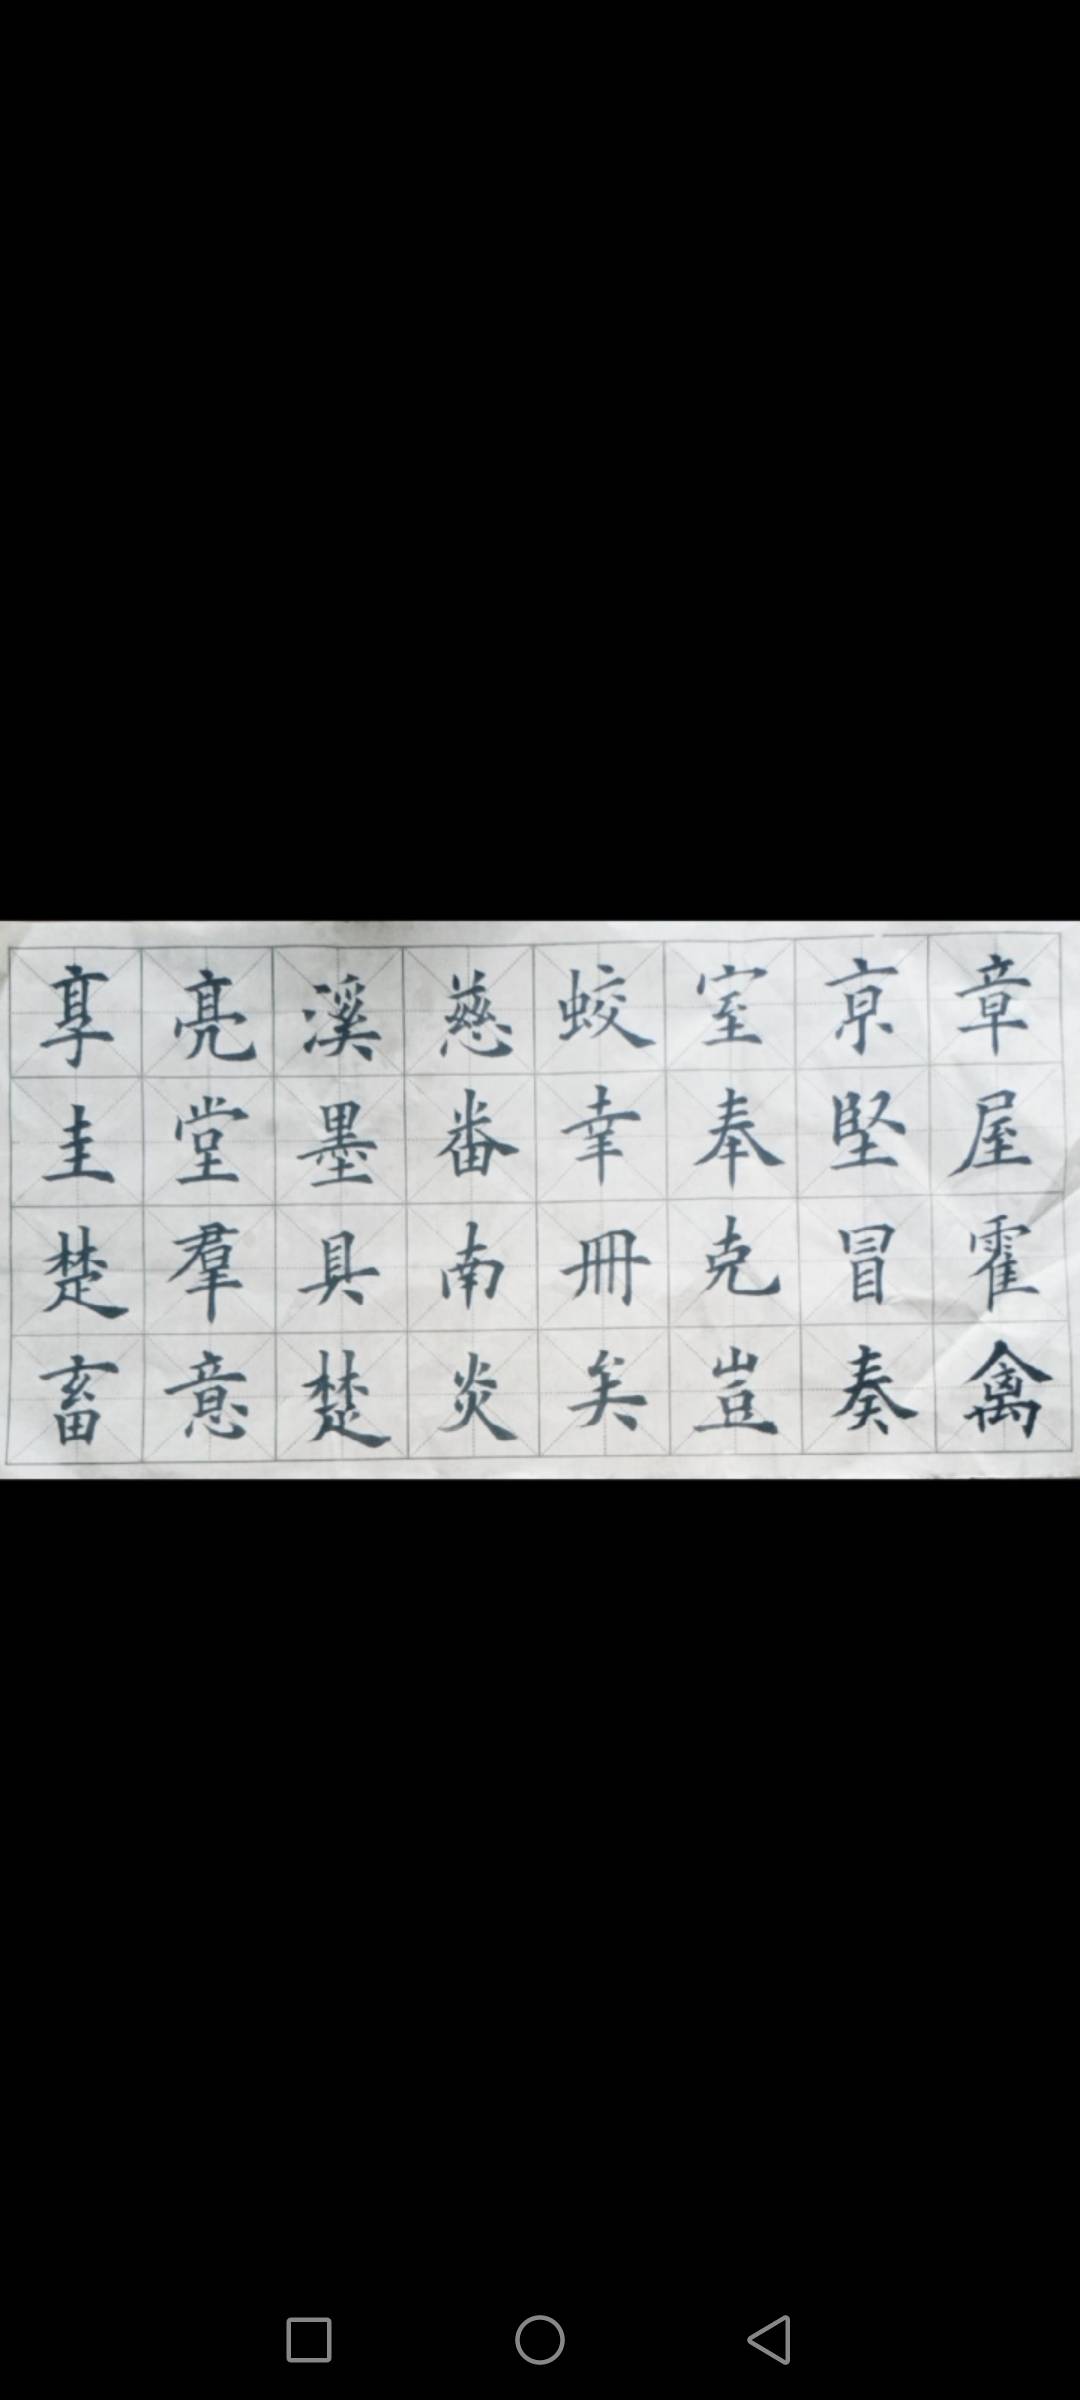 享亮溪慈蛟室京章
圭堂墨番幸奉堅屋
楚羣具南冊克冒霍
畜意楚炎矣豈奏禽